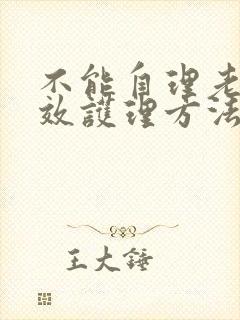 不能自理老
效護理方法
王大錘